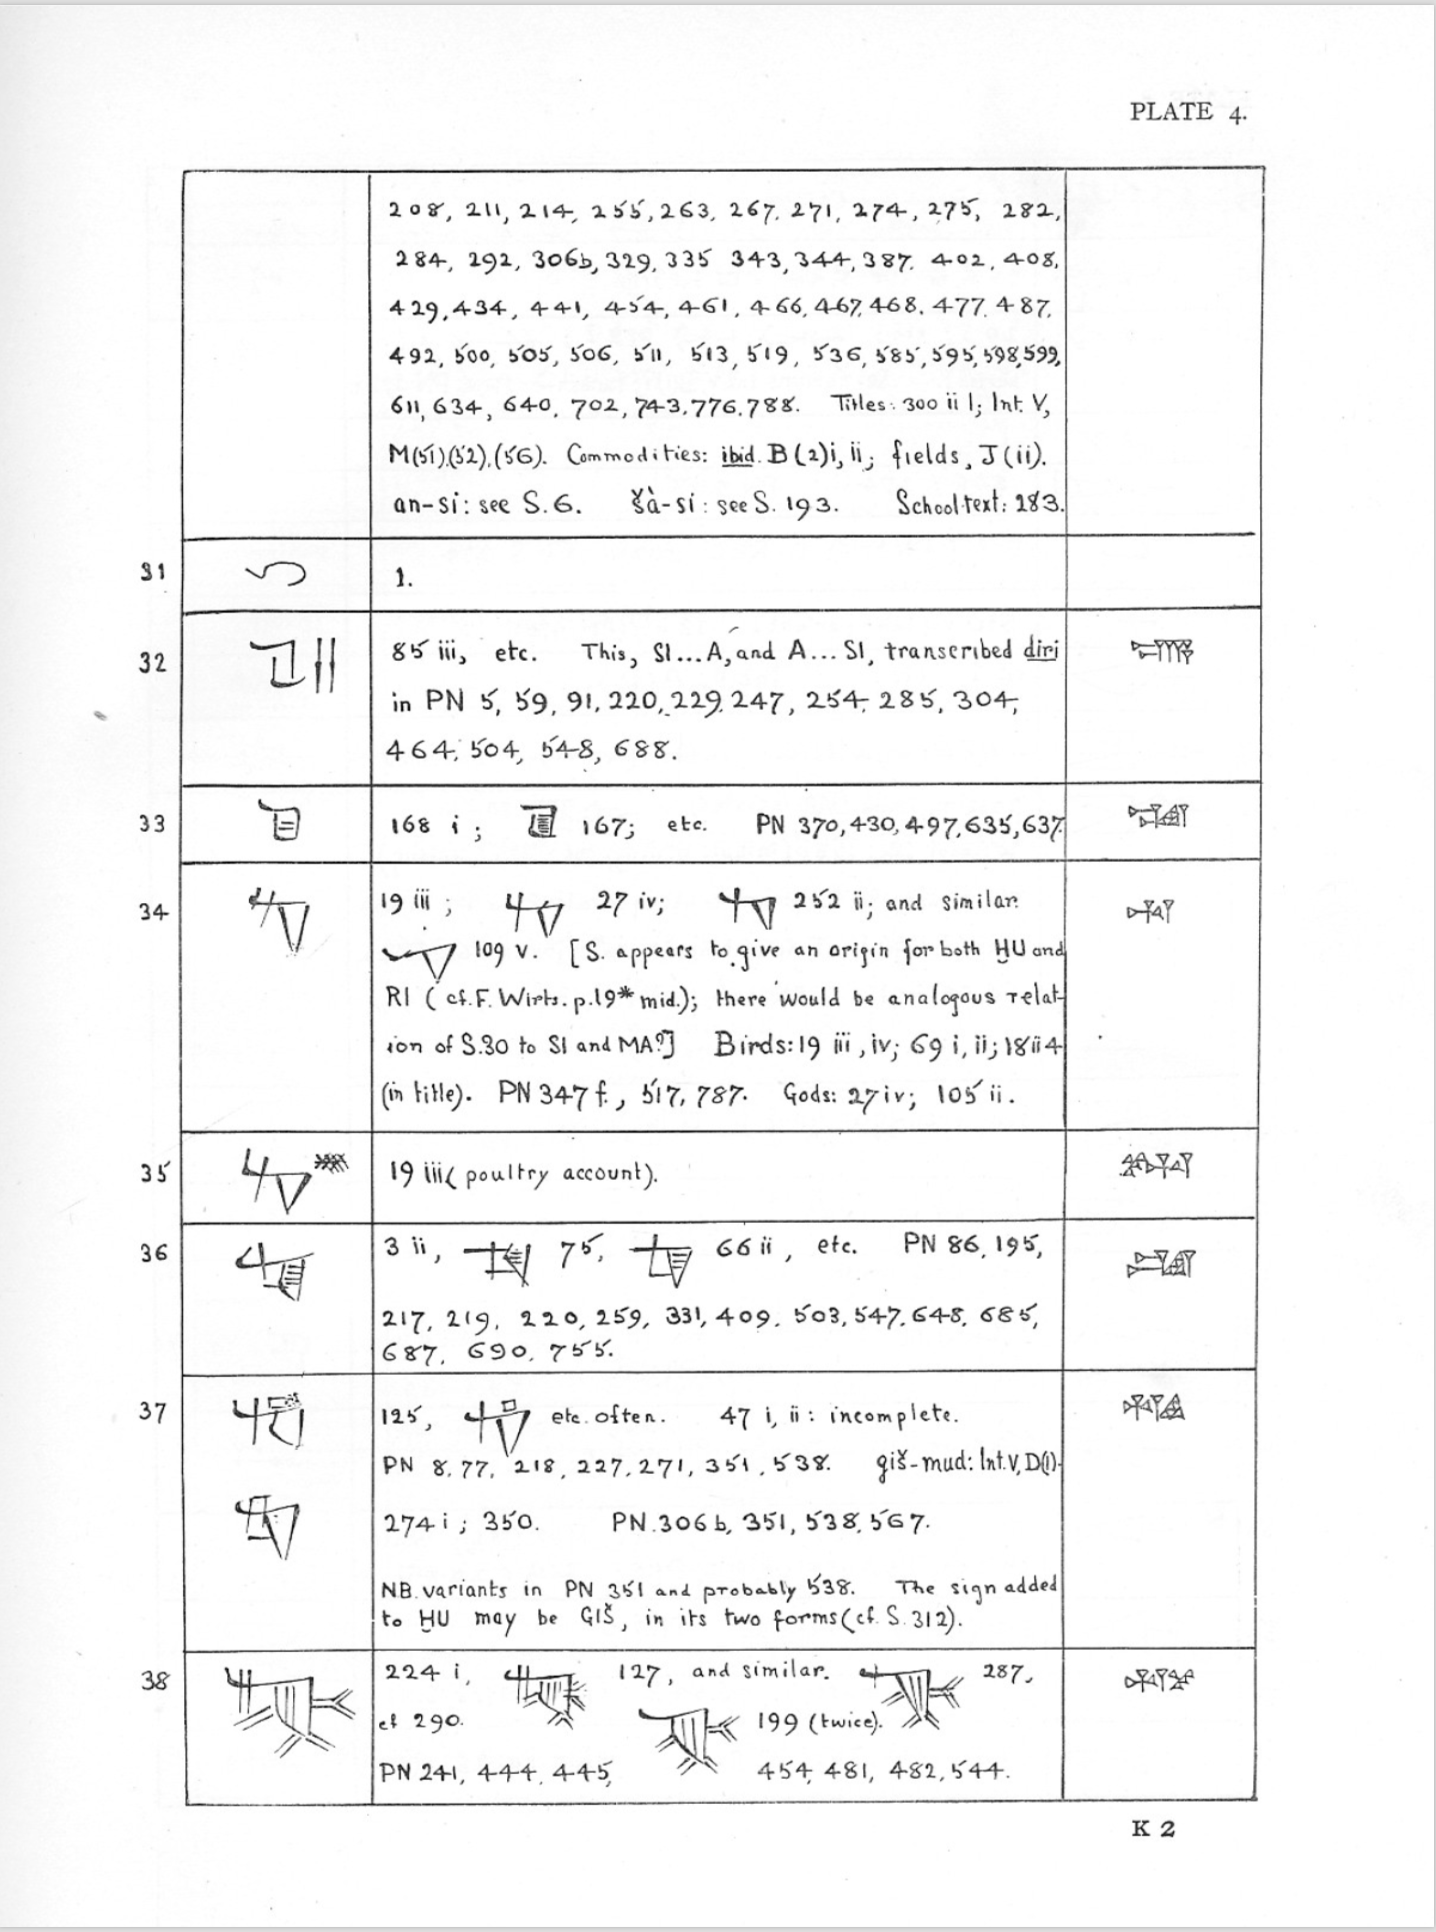 PLATE 4.
208, 211, 214, 255, 263, 267, 271, 274, 275, 282,
284, 292, 306b, 329, 335 343, 344, 387. 402, 408,
429, 434, 441, 454, 461, 466, 467, 468, 477, 487,
492, 500, 505, 506, 511, 513, 519, 536, 585, 595, 598, 599,
611, 634, 640, 702, 743, 776, 788. Titles: 300 ii 1; Int. V,
M(51),(52),(56). Commodities: ibid. B(2)i, ii; fields, J(ii).
an-si: see S.6. šà-si: see S. 193. School-text: 283.
31 1.
32 85 iii, etc. This, SI...A, and A...SI, transcribed diri
in PN 5, 59, 91, 220, 229, 247, 254, 285, 304,
464, 504, 548, 688.
33 168 i; 167; etc. PN 370, 430, 497, 635, 637.
34 19 iii; 27 iv; 252 ii; and similar.
109 v. [S. appears to give an origin for both ḪU and
RI (cf. F. Wirts. p.19* mid.); there would be analogous relat-
ion of S.30 to SI and MA?] Birds: 19 iii, iv; 69 i, ii; 18 ii 4
(in title). PN 347 f., 517, 787. Gods: 27 iv; 105 ii.
35 19 iii (poultry account).
36 3 ii, 75, 66 ii, etc. PN 86, 195,
217, 219, 220, 259, 331, 409, 503, 547, 648, 685,
687, 690, 755.
37 125, etc. often. 47 i, ii: incomplete.
PN 8, 77, 218, 227, 271, 351, 538. giš-mud: Int. V, D(1).
274 i; 350. PN. 306b, 351, 538, 567.
NB. variants in PN 351 and probably 538. The sign added
to ḪU may be GIŠ, in its two forms (cf. S. 312).
38 224 i, 127, and similar. 287,
cf 290. 199 (twice).
PN 241, 444, 445, 454, 481, 482, 544.
K 2